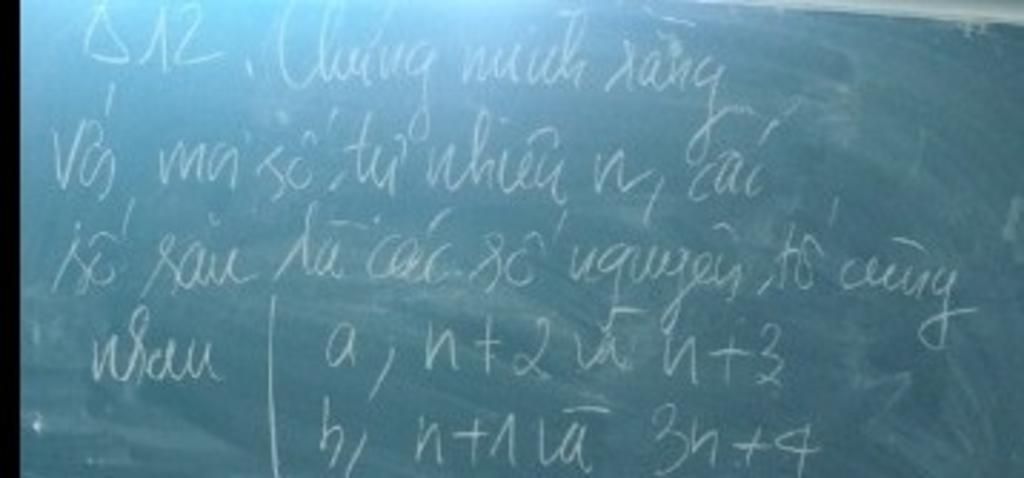 Δ12. Chứng minh rằng
Với mọi số tự nhiên n, các
số sau là các số nguyên tố cùng
nhau | a, n+2 và n+3
b, n+1 và 3n+4